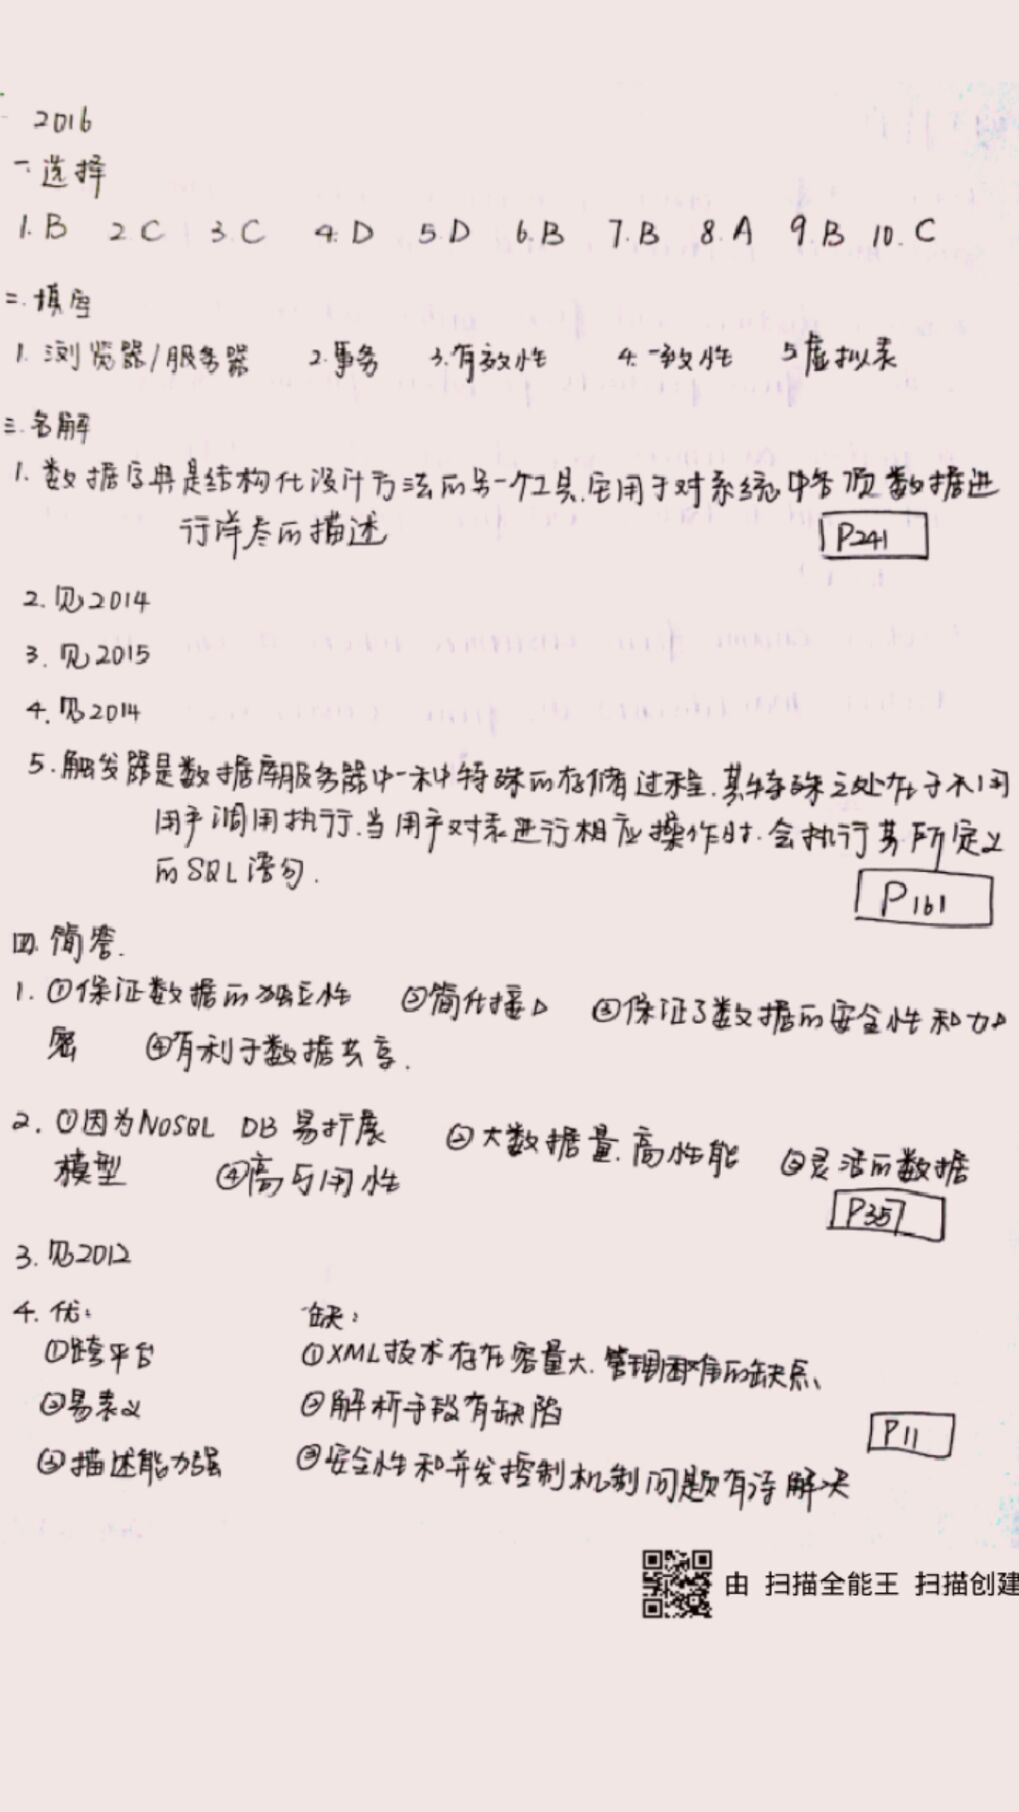 2016
一.选择
1.B 2.C 3.C 4.D 5.D 6.B 7.B 8.A 9.B 10.C
二.填空
1.浏览器/服务器 2.事务 3.有效性 4.一致性 5.虚拟表
三.名解
1.数据字典是结构化设计方法的另一个工具,它用于对系统中各项数据进
行详尽的描述
P241
2.见2014
3.见2015
4.见2014
5.触发器是数据库服务器中一种特殊的存储过程.其特殊之处在于不用
用户调用执行.当用户对表进行相应操作时.会执行其所定义
的SQL语句.
P161
四.简答.
1.①保证数据的独立性 ②简化接口 ③保证了数据的安全性和加
密 ④有利于数据共享.
2.①因为NoSQL DB 易扩展 ②大数据量.高性能 ③灵活的数据
模型 ④高可用性
P357
3.见2012
4.优: 缺:
①跨平台 ①XML技术存在容量大.管理困难的缺点、
②易表义 ②解析手段有缺陷
③描述能力强 ③安全性和并发控制机制问题有待解决
P11
由 扫描全能王 扫描创建